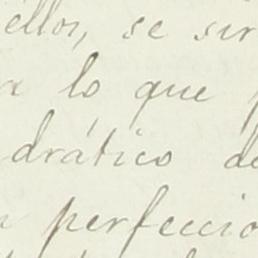 ellos, se sir
a lo que p
drático de
a perfeccio